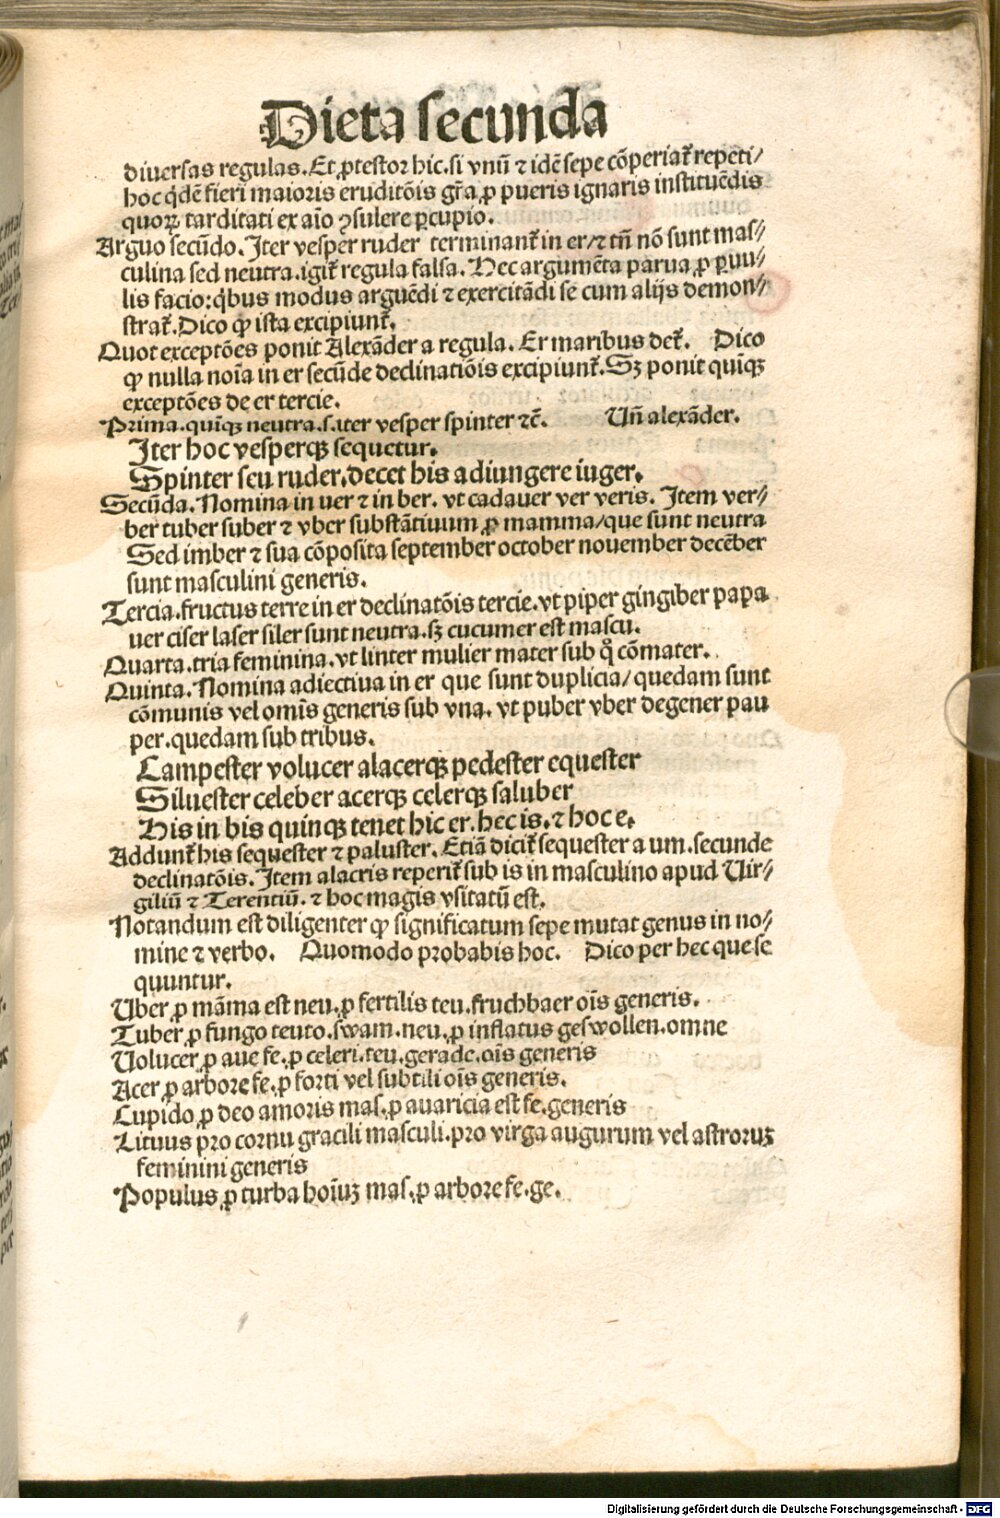 Dieta secunda
diuersas regulas. Et ꝓtestor hic. si vnū ⁊ idē sepe cōperiat᷑ repeti/
hoc q̇dē fieri maioris eruditōis gr̄a ꝓ pueris ignaris instituēdis
quoꝝ tarditati ex aīo ꝯsulere ꝑcupio.
Arguo secūdo. Iter vesper ruder terminant᷑ in er/⁊ tn̄ nō sunt mas//
culina sed neutra. igit᷑ regula falsa. Hec argumēta parua ꝓ ꝑuu//
lis facio: q̇bus modus arguēdi ⁊ exercitādi se cum alijs demon//
strat᷑. Dico ꝙ ista excipiunt᷑.
Quot exceptōes ponit Alexāder a regula. Er maribus det᷑. Dico
ꝙ nulla noīa in er secūde declinatiōis excipiunt᷑. Sꝫ ponit quīqꝫ
exceptōes de er tercie.
Prima. quīqꝫ neutra. s. iter vesper spinter ⁊c̄. Un̄ alexāder.
Iter hoc vesperqꝫ sequetur.
Spinter seu ruder. decet his adiungere iuger.
Secūda. Nomina in uer ⁊ in ber. vt cadauer ver veris. Item ver//
ber tuber suber ⁊ vber substātiuum ꝓ mamma/que sunt neutra
Sed imber ⁊ sua cōposita september october nouember decēber
sunt masculini generis.
Tercia. fructus terre in er declinatōis tercie. vt piper gingiber papa
uer ciser laser siler sunt neutra. sꝫ cucumer est mascu.
Quarta. tria feminina. vt linter mulier mater sub q̊ cōmater.
Quinta. Nomina adiectiua in er que sunt duplicia/ quedam sunt
cōmunis vel omīs generis sub vna. vt puber vber degener pau
per. quedam sub tribus.
Campester volucer alacerqꝫ pedester equester
Siluester celeber acerqꝫ celerqꝫ saluber
His in his quinqꝫ tenet hic er. hec is. ⁊ hoc e.
Addunt᷑ his sequester ⁊ paluster. Etiā dicit᷑ sequester a um. secunde
declinatōis. Item alacris reperit᷑ sub is in masculino apud Uir//
giliū ⁊ Terentiū. ⁊ hoc magis vsitatū est.
Notandum est diligenter ꝙ significatum sepe mutat genus in no//
mine ⁊ verbo. Quomodo probabis hoc. Dico per hec que se
quuntur.
Uber ꝓ māma est neu. ꝓ fertilis teu. fruchbaer oīs generis.
Tuber ꝓ fungo teuto. swam. neu. ꝓ inflatus geswollen. omne
Uolucer ꝓ aue fe. ꝓ celeri. teu. gerade. oīs generis
Acer ꝓ arbore fe. ꝓ forti vel subtili oīs generis.
Cupido ꝓ deo amoris mas. ꝓ auaricia est fe. generis
Lituus pro cornu gracili masculi. pro virga augurum vel astroruꝫ
feminini generis
Populus ꝓ turba hoīuꝫ mas. ꝓ arbore fe. ge.
Digitalisierung gefördert durch die Deutsche Forschungsgemeinschaft - DFG